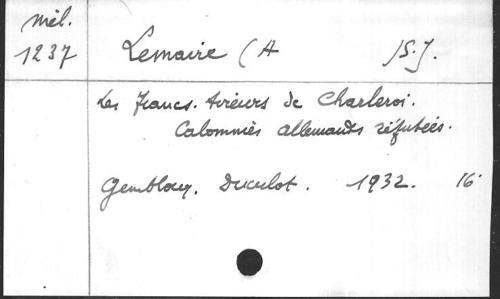 Mél.
1237
Lemaire (A /S.J.
Les francs-tireurs de Charleroi.
Calomnies allemandes réfutées.
Gembloux. Duculot. 1932. 16°